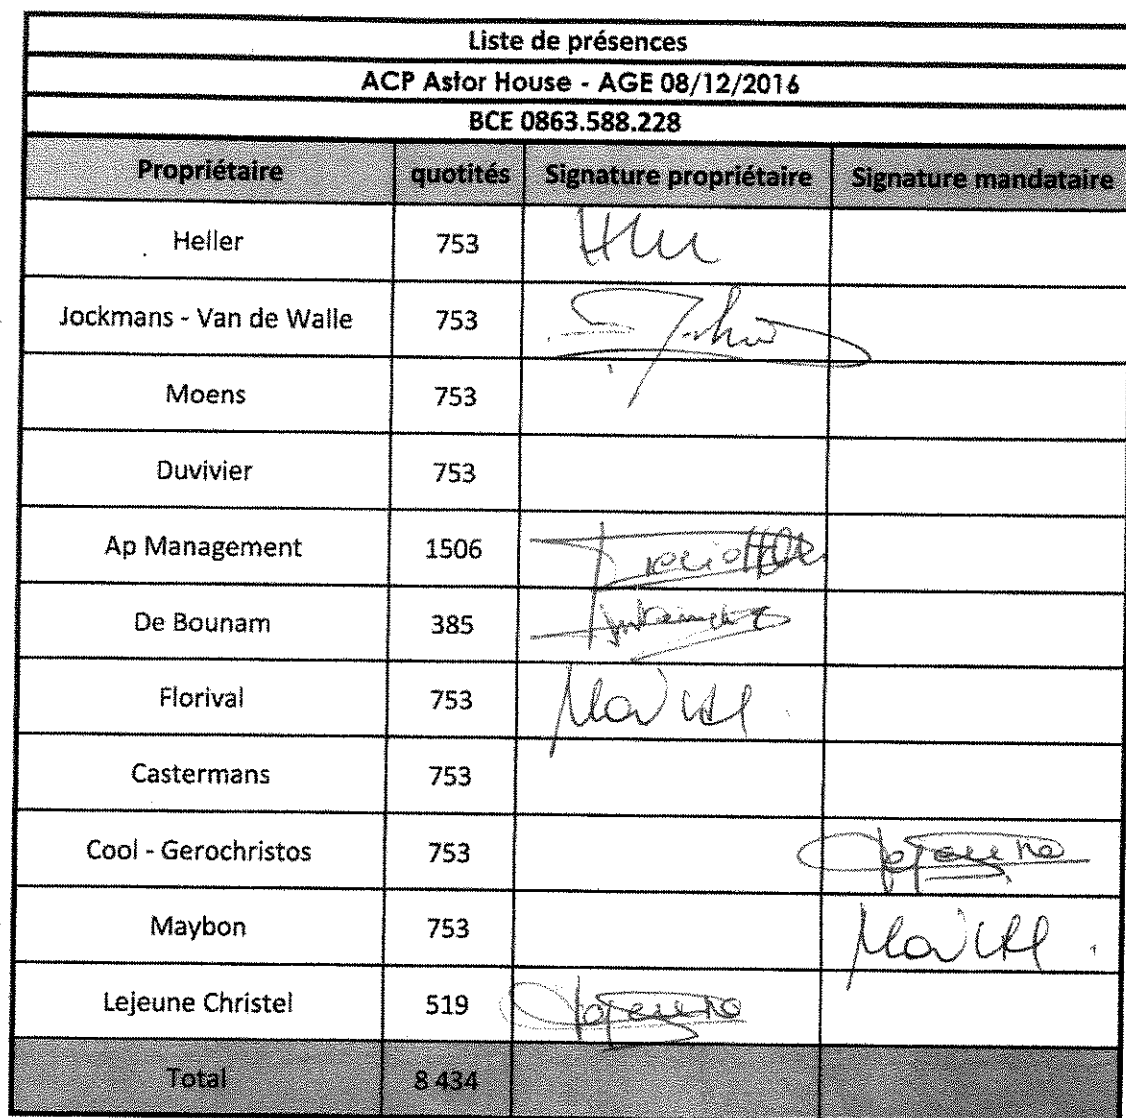 Liste de présences
ACP Astor House - AGE 08/12/2016
BCE 0863.588.228
Propriétaire quotités Signature propriétaire Signature mandataire
Heller 753
Jockmans - Van de Walle 753
Moens 753
Duvivier 753
Ap Management 1506
De Bounam 385
Florival 753
Castermans 753
Cool - Gerochristos 753
Maybon 753
Lejeune Christel 519
Total 8 434